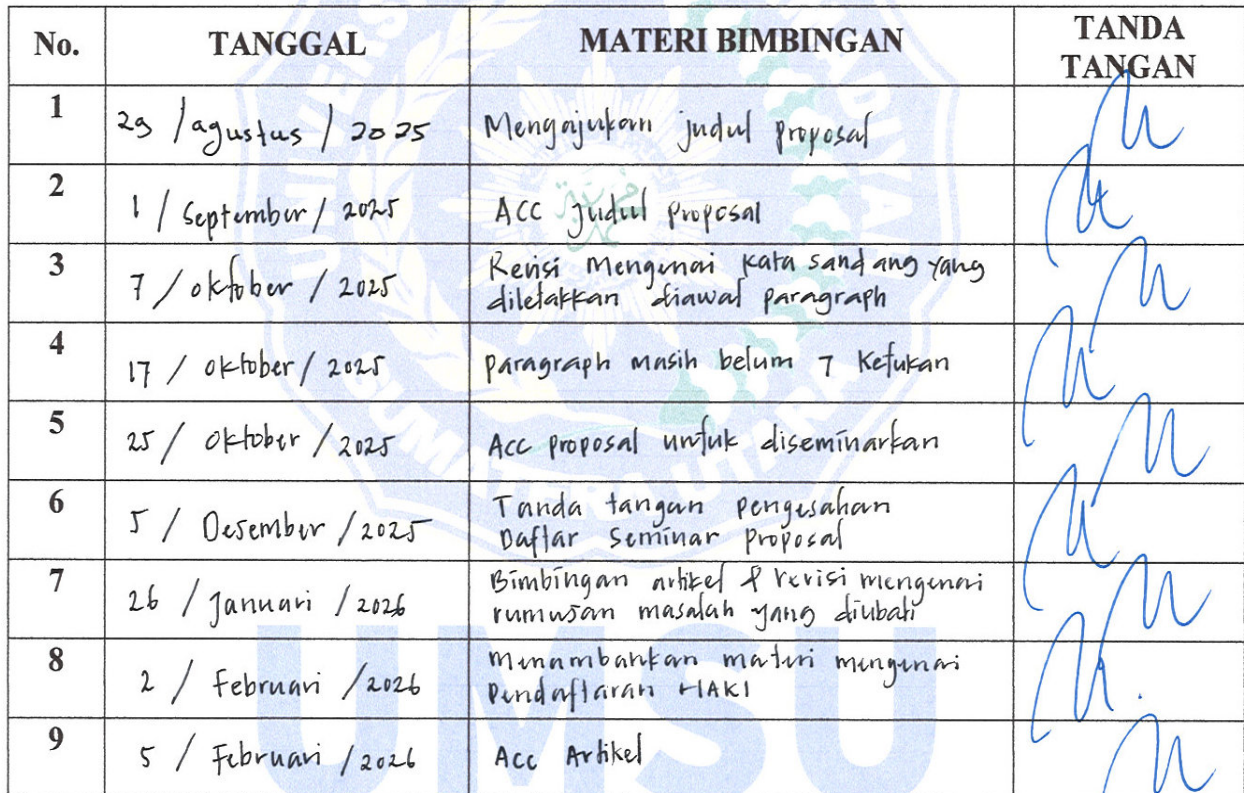 No. TANGGAL MATERI BIMBINGAN TANDA TANGAN
1 29 / agustus / 2025 Mengajukan judul proposal
2 1 / September / 2025 ACC Judul Proposal
3 7 / oktober / 2025 Revisi Mengenai kata sandang yang
diletakkan diawal paragraph
4 17 / oktober / 2025 paragraph masih belum 7 Ketukan
5 25 / oktober / 2025 Acc proposal untuk diseminarkan
6 5 / Desember / 2025 Tanda tangan pengesahan
Daftar Seminar Proposal
7 26 / Januari / 2026 Bimbingan artikel & revisi mengenai
rumusan masalah yang diubah
8 2 / Februari / 2026 Menambahkan materi mengenai
Pendaftaran HAKI
9 5 / Februari / 2026 Acc Artikel
UMSU